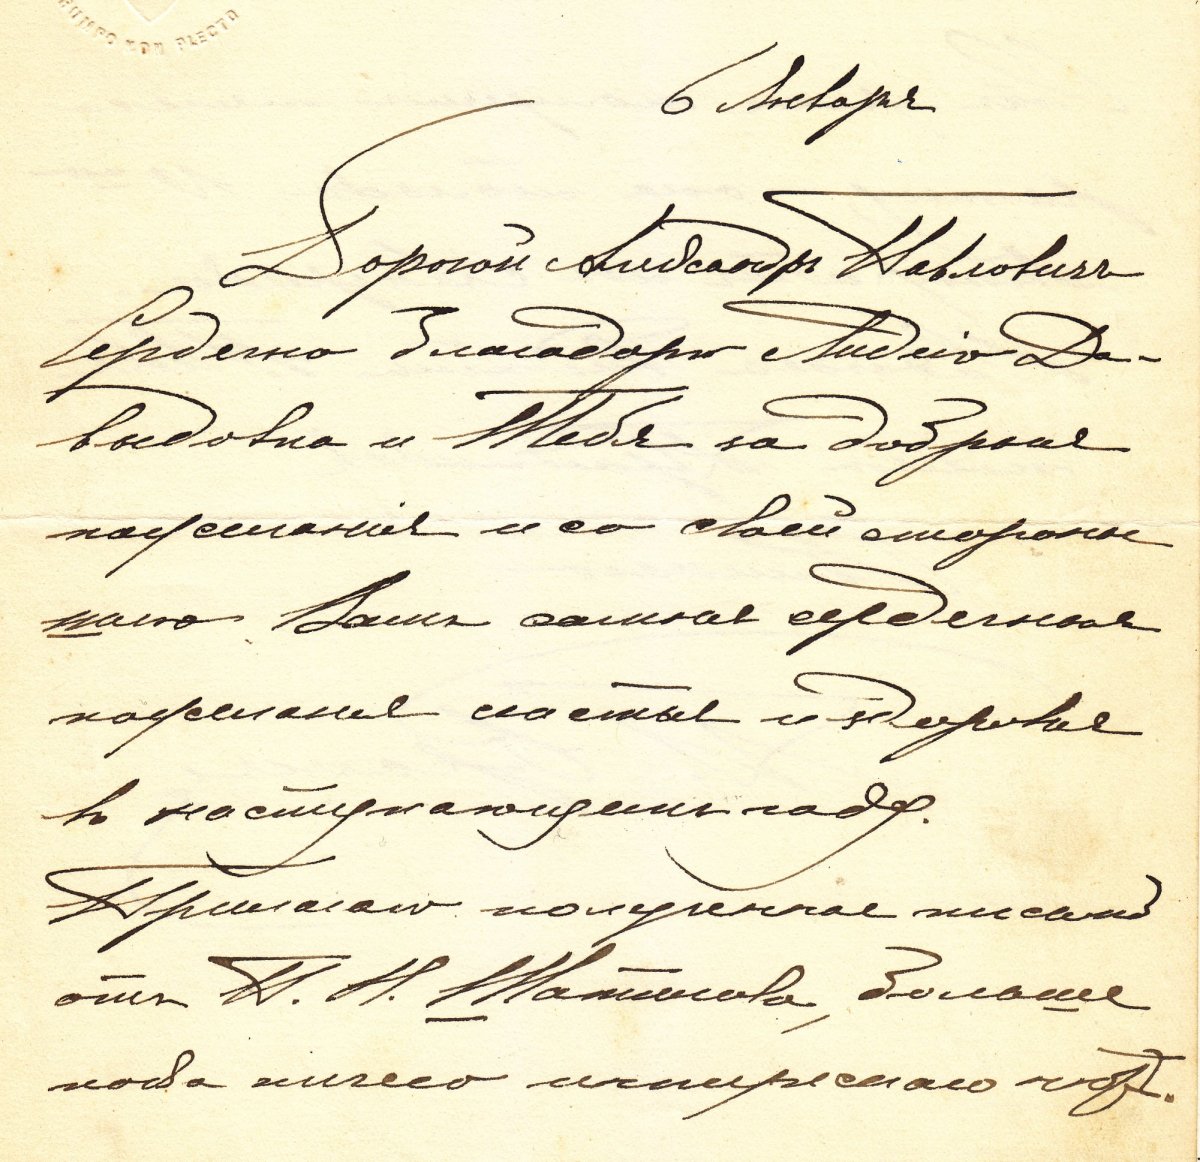 RUMPO NON PLECTO
6 Января
Дорогой Александръ Павловичъ
Сердечно благодарю Лидію Да-
выдовна и Тебя за добрыя
пожеланія и со своей стороны
шлю Вамъ самыя сердечныя
пожеланія счастья и здоровья
въ наступающемъ году.
Прилагаю полученное письмо
отъ П. Н. Шатилова, больше
пока ничего интереснаго нѣтъ.